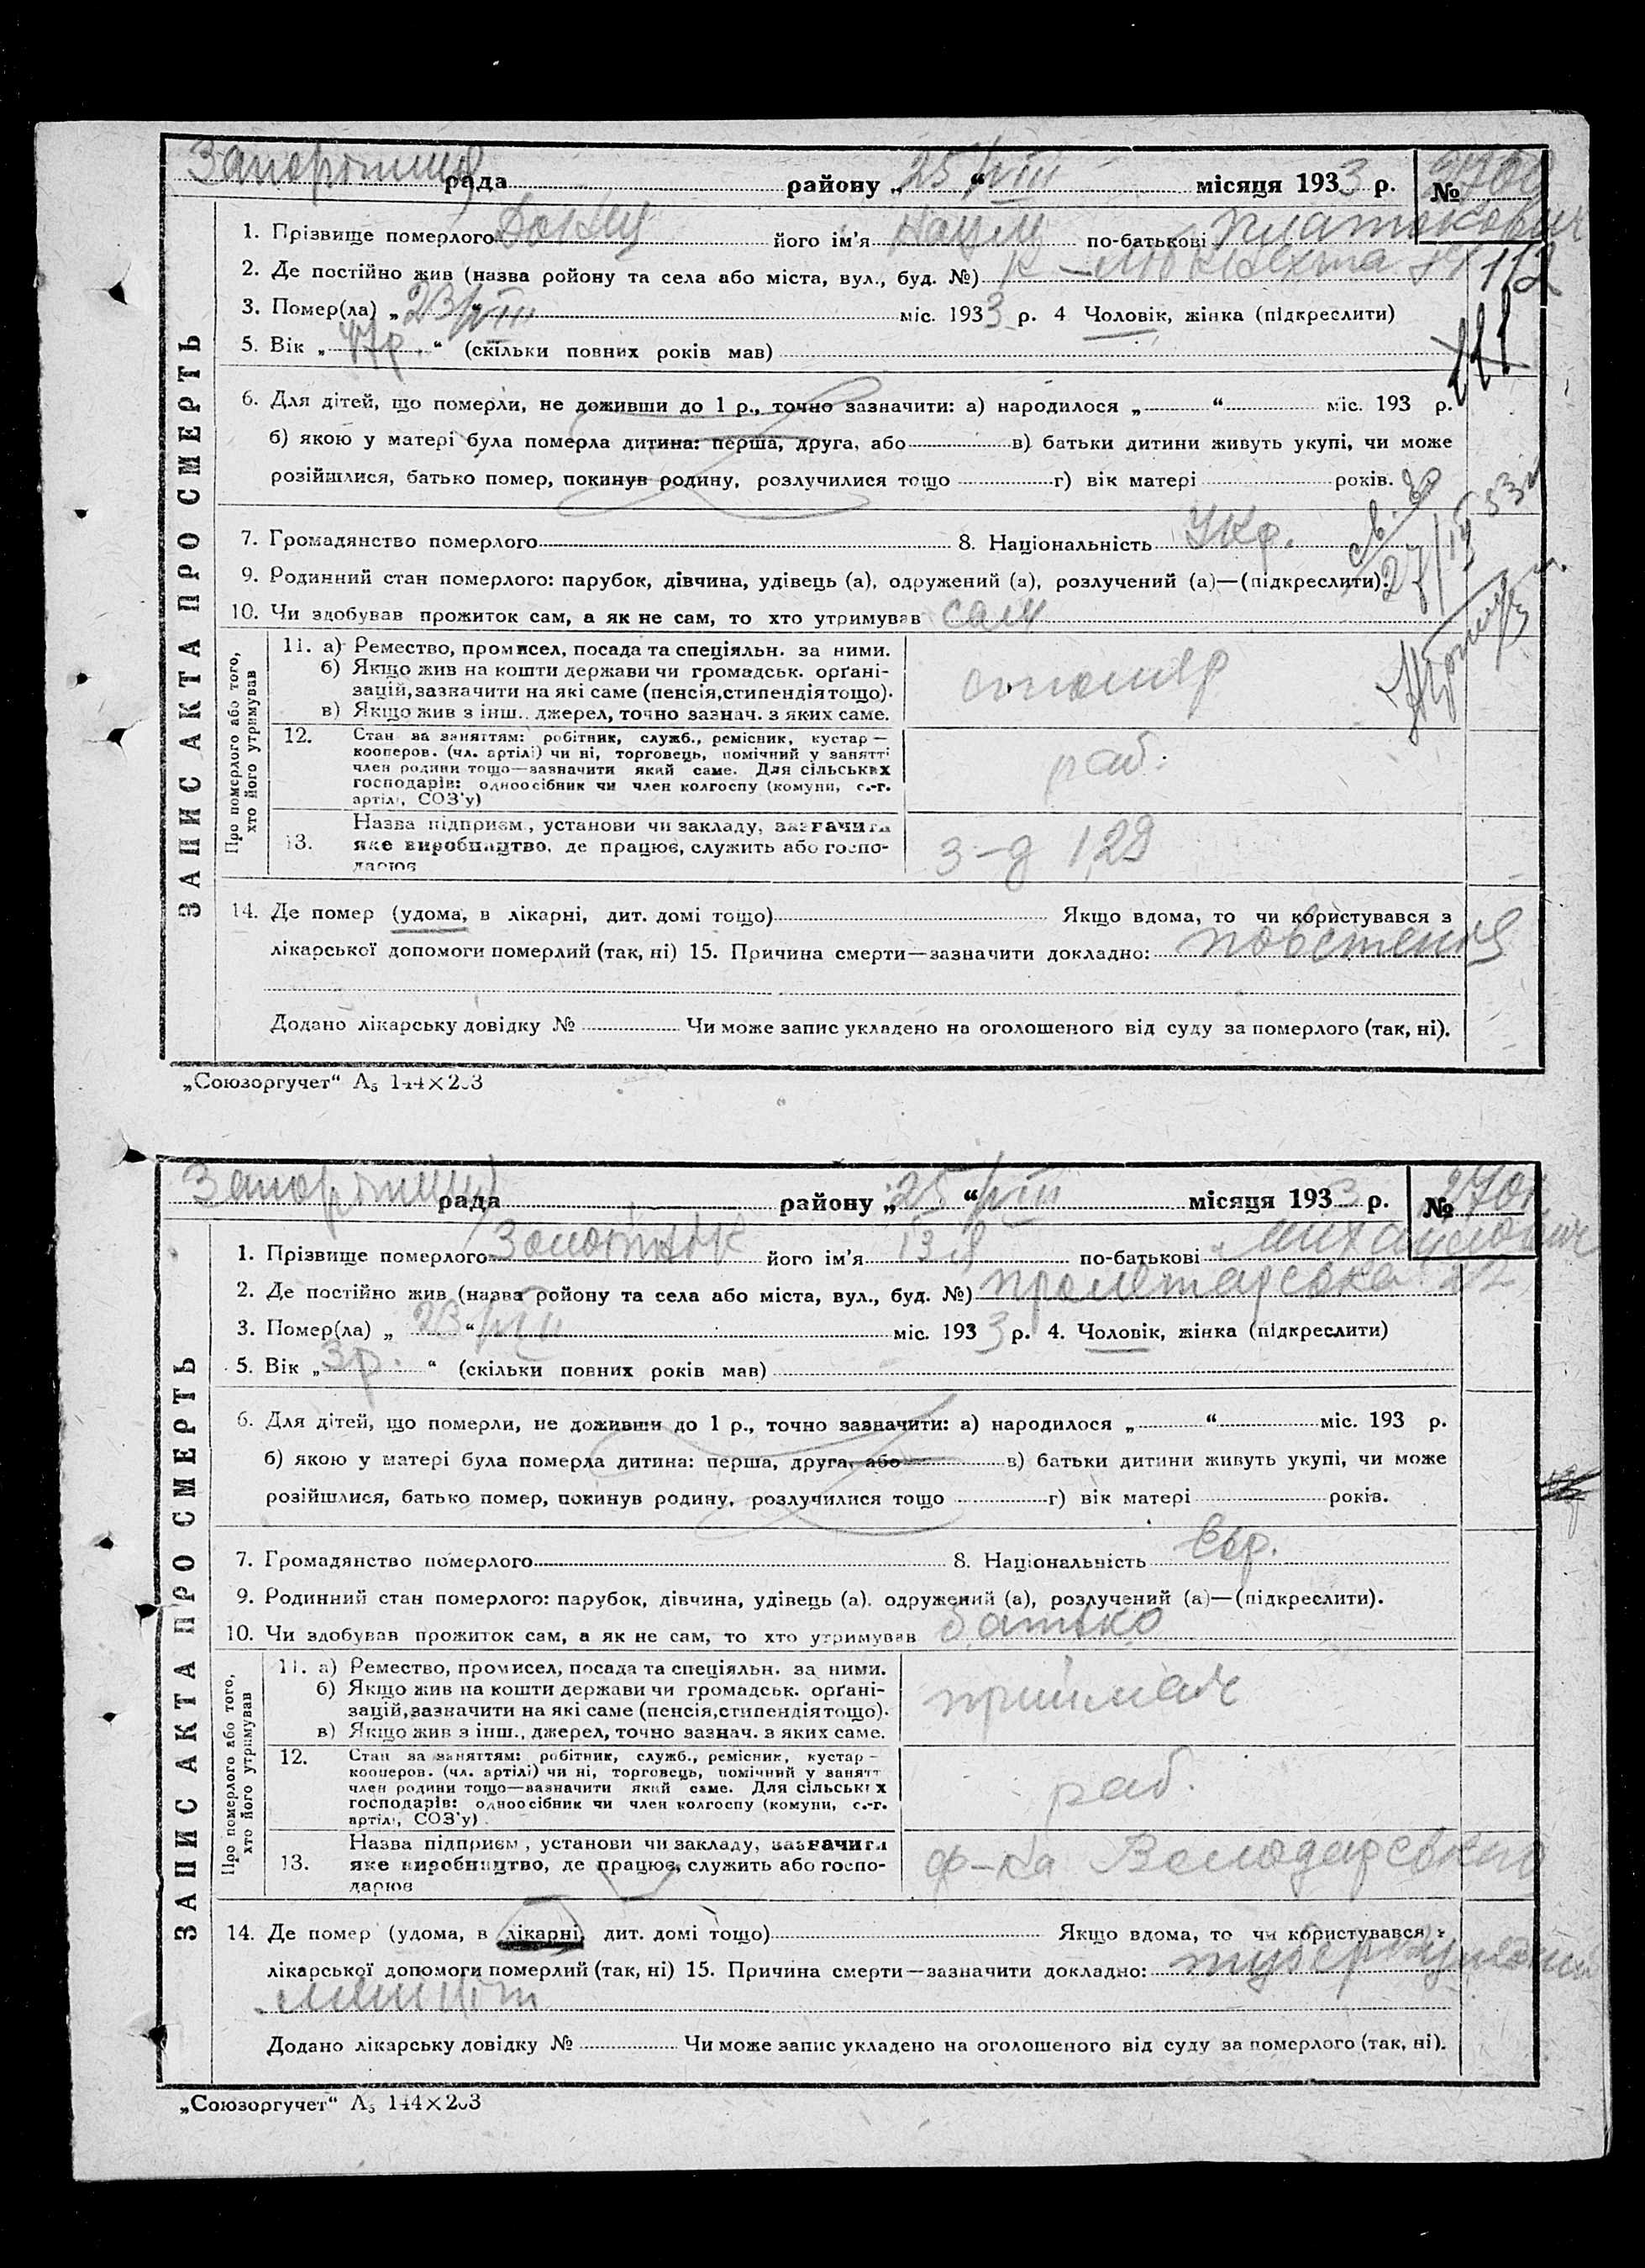 рада району „25“ VIII місяця 1933 р. № 2700
1. Прізвище померлого його ім'я Наум по-батькові
2. Де постійно жив (назва ройону та села або міста, вул., буд. №)
112
3. Помер(ла) „23“ VIII міс. 1933 р. 4 Чоловік, жінка (підкреслити)
5. Вік „47р.“ (скільки повних років мав)
6. Для дітей, що померли, не доживши до 1 р., точно зазначити: а) народилося „ “ міс. 193 р.
б) якою у матері була померла дитина: перша, друга, або в) батьки дитини живуть укупі, чи може
розійшлися, батько помер, покинув родину, розлучилися тощо г) вік матері років.
7. Громадянство померлого 8. Національність Укр.
9. Родинний стан померлого: парубок, дівчина, удівець (а), одружений (а), розлучений (а)—(підкреслити).
10. Чи здобував прожиток сам, а як не сам, то хто утримував сам
ЗАПИС АКТА ПРО СМЕРТЬ
Про померлого або того, хто його утримував
11. а) Ремество, промисел, посада та спеціяльн. за ними.
б) Якщо жив на кошти держави чи громадськ. орґані-
зацій, зазначити на які саме (пенсія, стипендія тощо).
в) Якщо жив з інш., джерел, точно зазнач. з яких саме.
столяр
12. Стан за заняттям: робітник, служб., ремісник, кустар —
кооперов. (чл. артілі) чи ні, торговець, помічний у занятті
член родини тощо—зазначити який саме. Для сільських
господарів: одноосібник чи член колгоспу (комуни, с.-г.
артілі, СОЗ'у)
раб.
13. Назва підприєм., установи чи закладу, зазначити
яке виробництво, де працює, служить або госпо-
дарює
з-д 129
14. Де помер (удома, в лікарні, дит. домі тощо) Якщо вдома, то чи користувався з
лікарської допомоги померлий (так, ні) 15. Причина смерти—зазначити докладно: повешення
Додано лікарську довідку № Чи може запис укладено на оголошеного від суду за померлого (так, ні).
„Союзоргучет“ А5 144×203
рада району „25“ VIII місяця 1933 р. № 2701
1. Прізвище померлого його ім'я Ізя по-батькові Михайлович
2. Де постійно жив (назва ройону та села або міста, вул., буд. №) Пролетарська 22
3. Помер(ла) „23“ VIII міс. 1933 р. 4. Чоловік, жінка (підкреслити)
5. Вік „3р.“ (скільки повних років мав)
6. Для дітей, що померли, не доживши до 1 р., точно зазначити: а) народилося „ “ міс. 193 р.
б) якою у матері була померла дитина: перша, друга, або в) батьки дитини живуть укупі, чи може
розійшлися, батько помер, покинув родину, розлучилися тощо г) вік матері років.
7. Громадянство померлого 8. Національність Євр.
9. Родинний стан померлого: парубок, дівчина, удівець (а), одружений (а), розлучений (а)—(підкреслити).
10. Чи здобував прожиток сам, а як не сам, то хто утримував батько
ЗАПИС АКТА ПРО СМЕРТЬ
Про померлого або того, хто його утримував
11. а) Ремество, промисел, посада та спеціяльн. за ними.
б) Якщо жив на кошти держави чи громадськ. орґані-
зацій, зазначити на які саме (пенсія, стипендія тощо).
в) Якщо жив з інш., джерел, точно зазнач. з яких саме.
приймач
12. Стан за заняттям: робітник, служб., ремісник, кустар —
кооперов. (чл. артілі) чи ні, торговець, помічний у занятт
член родини тощо—зазначити який саме. Для сільських
господарів: одноосібник чи член колгоспу (комуни, с.-г.
артілі, СОЗ'у)
раб.
13. Назва підприєм., установи чи закладу, зазначити
яке виробництво, де працює, служить або госпо-
дарює
ф-ка Володарського
14. Де помер (удома, в лікарні, дит. домі тощо) Якщо вдома, то чи користувався з
лікарської допомоги померлий (так, ні) 15. Причина смерти—зазначити докладно: туберкульозний
менінгіт
Додано лікарську довідку № Чи може запис укладено на оголошеного від суду за померлого (так, ні).
„Союзоргучет“ А5 144×203